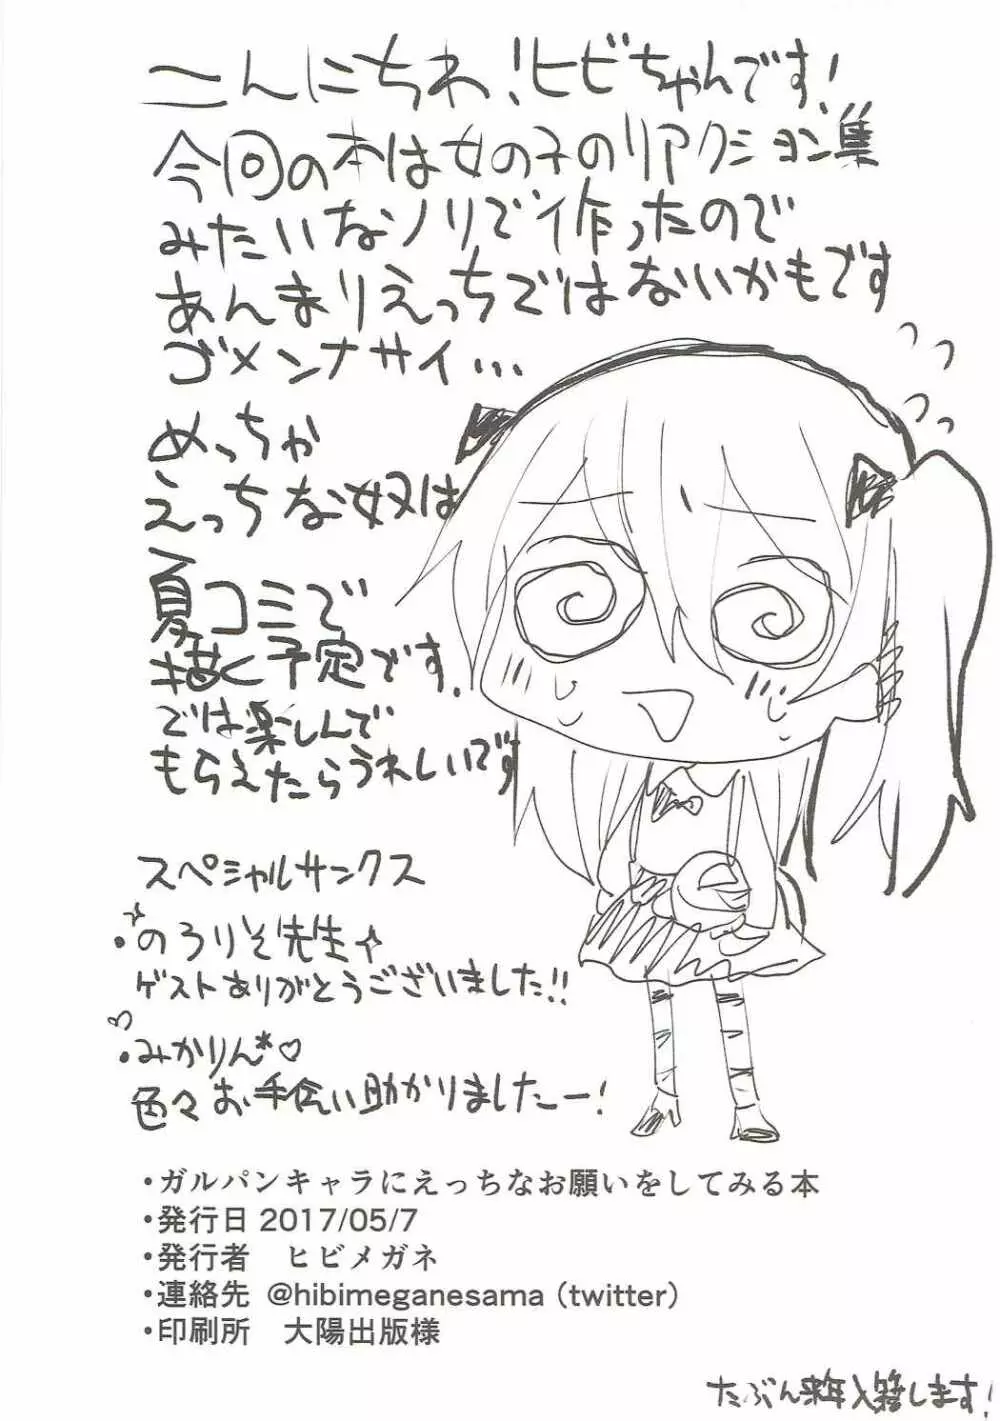 こんにちわ!ヒビちゃんです!
今回の本は女の子のリアクション集
みたいなノリで作ったので
あんまりえっちではないかもです
ゴメンナサイ…
めっちゃ
えっちな奴は
夏コミで
描く予定です.
では楽しんで
もらえたらうれしいです
スペシャルサンクス
・のろりそ先生
ゲストありがとうございました!!
・みかりん*♡
色々お手伝い助かりましたー!
・ガルパンキャラにえっちなお願いをしてみる本
・発行日 2017/05/7
・発行者 ヒビメガネ
・連絡先 @hibimeganesama (twitter)
・印刷所 大陽出版様
たぶん来年入籍します!